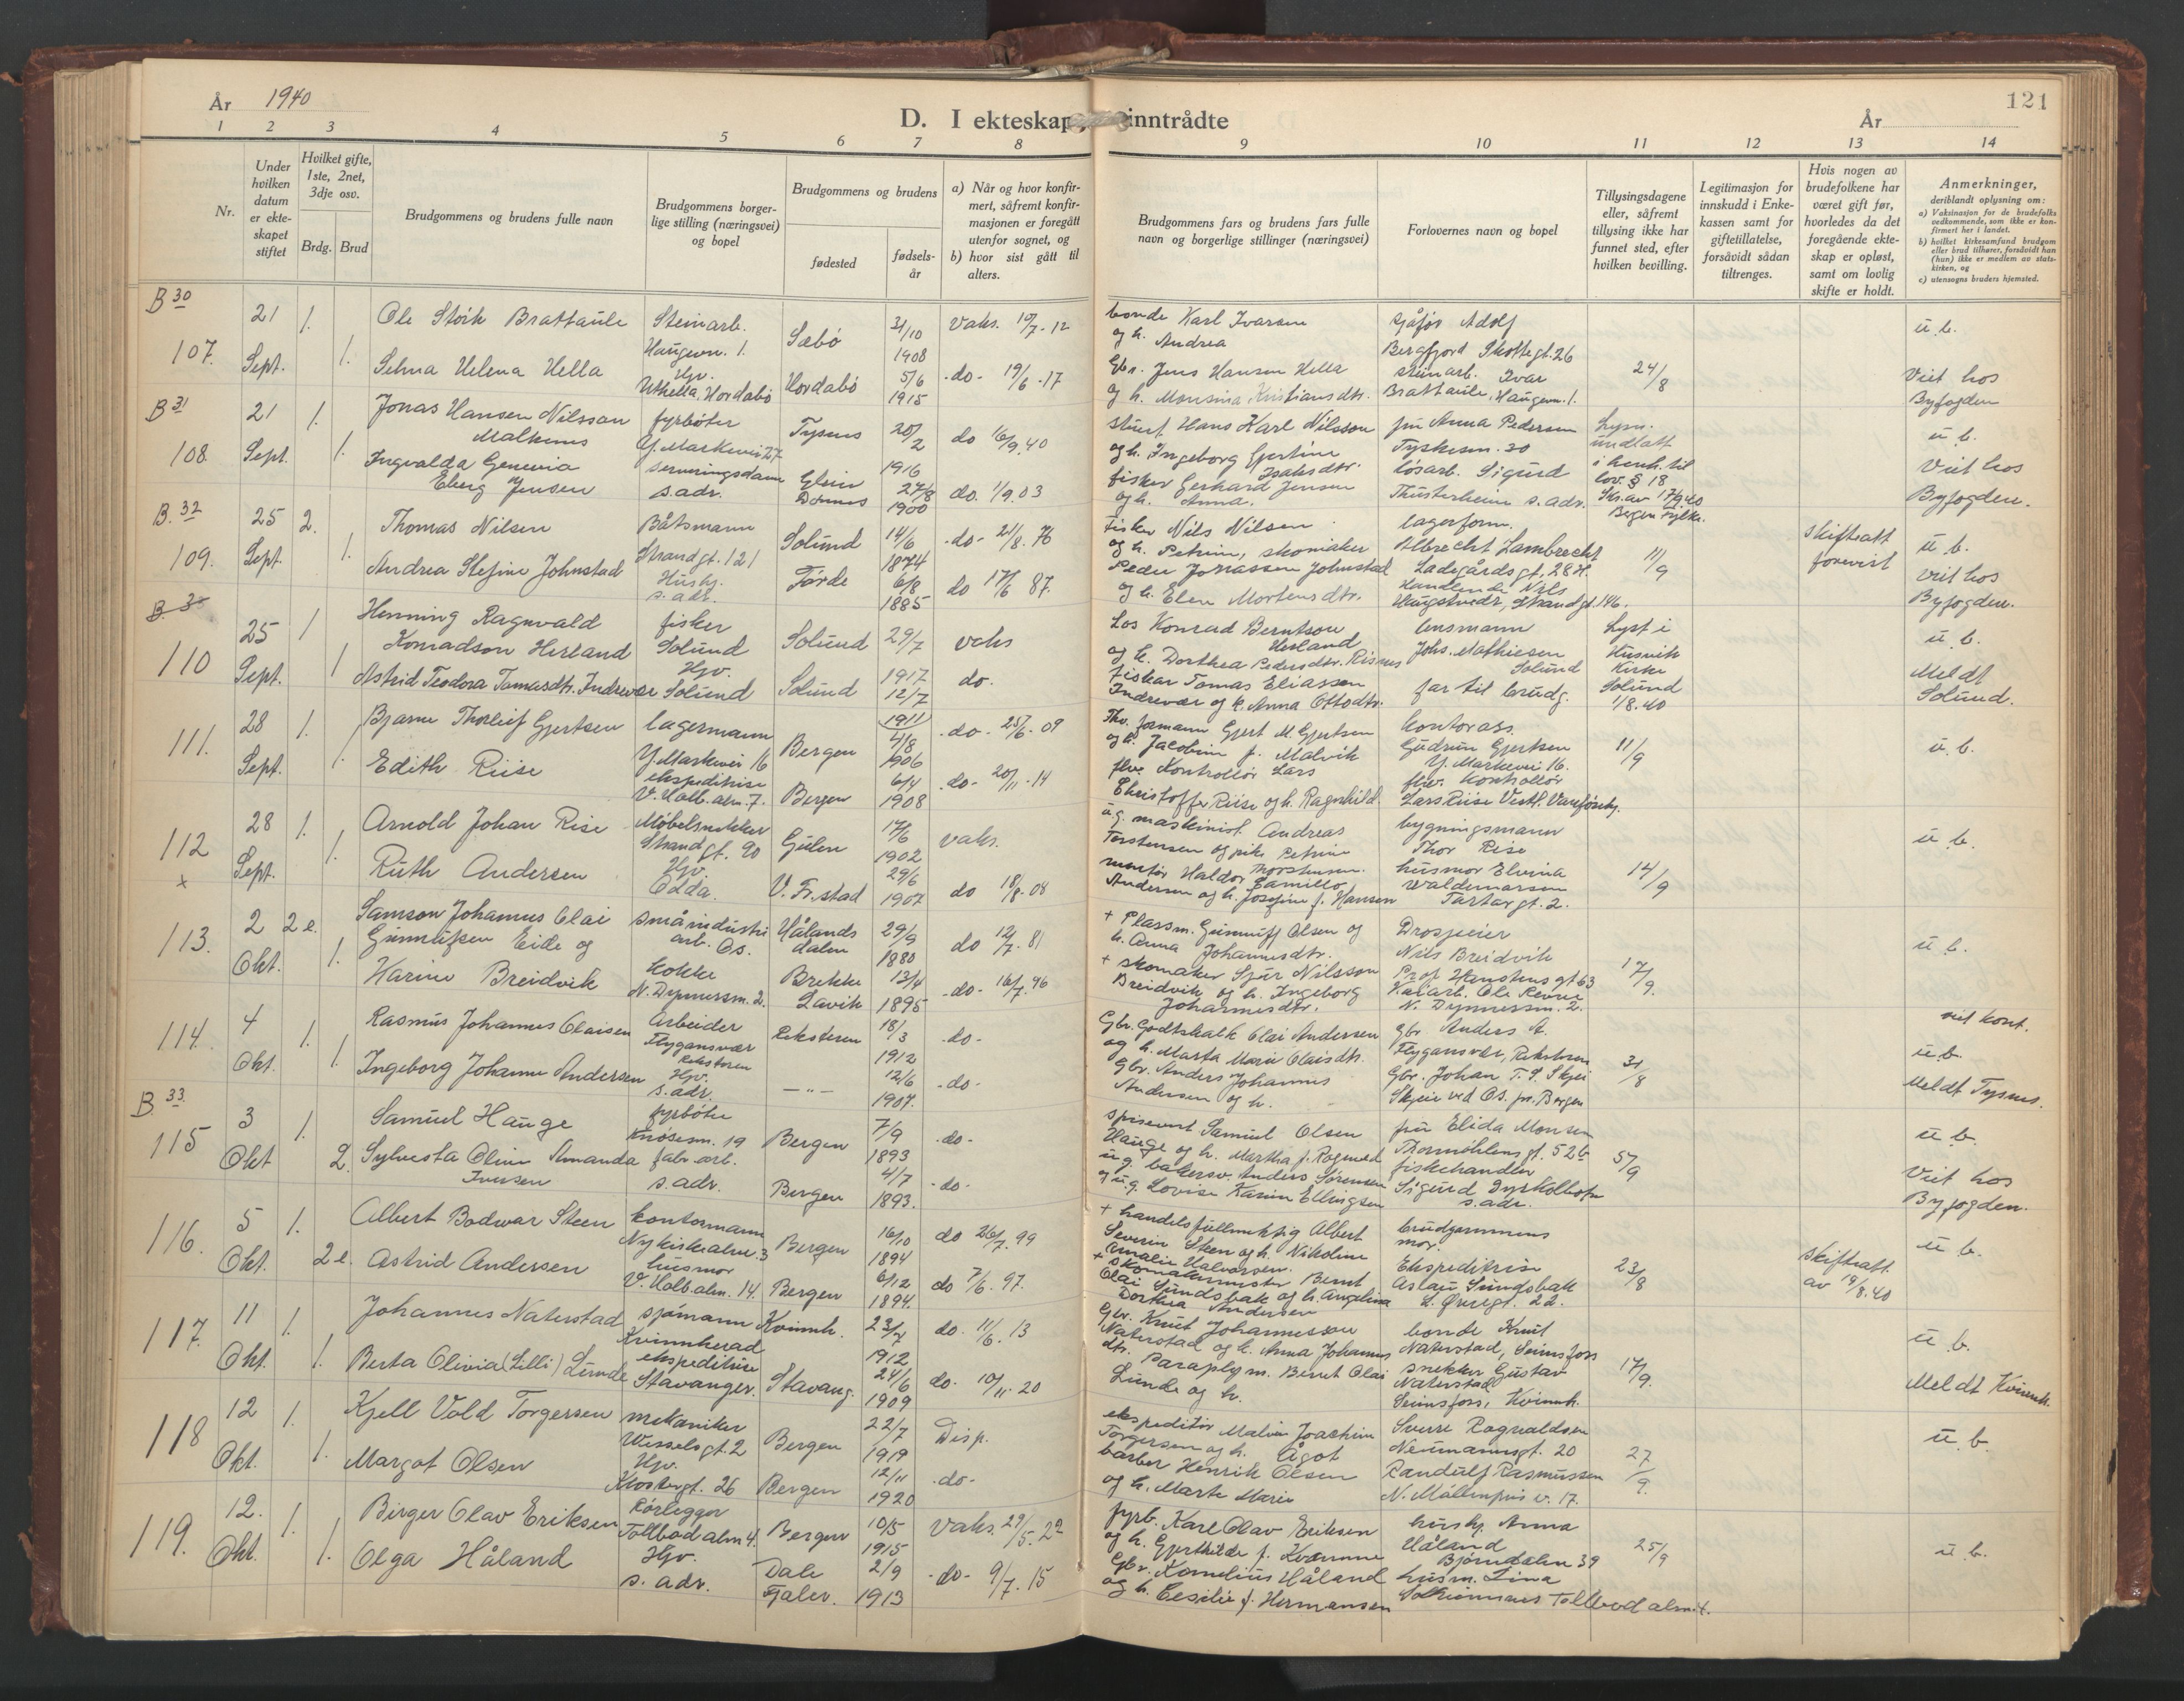 År 1940
D. I ekteskap inntrådte
År
121
1 2 3 4 5 6 7 8 9 10 11 12 13 14
Nr.
Under hvilken datum er ekteskapet stiftet
Hvilket gifte, 1ste, 2net, 3dje osv.
Brdg. Brud
Brudgommens og brudens fulle navn
Brudgommens borgerlige stilling (næringsvei) og bopel
Brudgommens og brudens
fødested
fødselsår
a) Når og hvor konfirmert, såfremt konfirmasjonen er foregått utenfor sognet, og
b) hvor sist gått til alters.
Brudgommens fars og brudens fars fulle navn og borgerlige stillinger (næringsvei)
Forlovernes navn og bopel
Tillysingsdagene eller, såfremt tillysing ikke har funnet sted, efter hvilken bevilling.
Legitimasjon for innskudd i Enkekassen samt for giftetillatelse, forsåvidt sådan tiltrenges.
Hvis nogen av brudefolkene har været gift før, hvorledes da det foregående ekteskap er opløst, samt om lovlig skifte er holdt.
Anmerkninger, deriblandt oplysning om:
a) Vaksinasjon for de brudefolks vedkommende, som ikke er konfirmert her i landet.
b) hvilket kirkesamfund brudgom eller brud tilhører, forsåvidt han (hun) ikke er medlem av statskirken, og
c) utensogns bruders hjemsted.
B 30
107. 21 Sept. 1. Ole Störk Brattaule Steinarb. Haugevn. 1. Sæbö 31/10 1908 Vaks. 19/7-12
bonde Karl Ivarsen og h. Andrea
sjåför Adolf Bergfjord Skottegt. 26
24/8
u. b.
1. Selma Helena Hella Hjv. Uthella, Hordabö Hordabö 5/6 1915 -do- 19/6-17
Gbr. Jens Hansen Hella og h. Monsina Kristiansdtr.
steinarb. Ivar Brattaule, Haugevn. 1.
Viet hos Byfogden
B 31
108. 21 Sept. 1. Jonas Hansen Nilsson Malkenes fyrböter Y. Markevei 27 Tysnes 20/2 1916 do 16/9.40
stuert Hans Karl Nilsson og h. Ingeborg Gjertine Isaksdtr.
fru Anna Pedersen Tyskesm. 20
Lysn. undlatt i henh. til lov. § 18 Skr. av 17/9.40 Bergen Fylke.
u. b.
1. Ingvalda Genevia Eberg Jensen serveringsdame s. adr. Glein Dönnes 27/8 1900 do. 1/9.03
fisker Gerhard Jensen og h. Anna.
lösarb. Sigurd s. adr.
Viet hos Byfogden.
B. 32
109. 25 Sept. 2. Thomas Nilsen Båtsmann Strandgt. 121 Solund 14/6 1874 -do- 21/8.76
Fisker Nils Nilsen og h. Petrine,
lagerform. Albrecht Lambrecht Ladegårdsgt. 28 H.
11/9
skifteatt forevist
u. b.
1. Andrea Stefine Johnstad Hushj. s. adr. Förde 6/8 1885 do 17/6 87.
skomaker Peder Jonassen Johnstad og h. Elen Mortensdtr.
Handlende Nils Haugstvedt, Strandgt. 146.
viet hos Byfogden.
110 25 Sept. 1 Henning Ragnvald Konradson Herland fisker Solund Solund 29/7 1917 vaks
Los Konrad Berntson Herland og h. Dorthea Pedersdtr. Risnes
lensmann Johs. Mathiesen Solund
Lyst i Husvik Kirke Solund 1/8.40
u. b.
1 Astrid Teodora Tomasdtr. Indrevær Hjv. Solund Solund 12/7 1911 do.
fisker Tomas Eliassen Indrevær og h. Anna Ottodtr.
far til brudg.
Meldt Solund.
111. 28 Sept. 1. Bjarne Thorleif Gjertsen lagermann Y. Markevei 16 Bergen 4/8 1906 -do- 25/6-09
formann Gjert M. Gjertsen og h. Jacobine f. Malvik
kontorass. Gudrun Gjertsen Y. Markevei 16.
11/9
u. b.
1. Edith Riise ekspeditrise V. Holb. alm. 7. Bergen 6/4 1908 -do- 20/11-14
Kontrollör Lars Christoffer Riise og h. Ragnhild
Kontrollör Lars Riise
112 x 28 Sept. 1. Arnold Johan Rise Möbelsnekker Strandgt. 90 Gulen 17/6 1902 vaks.
u. g. maskinist Andreas Torstensen og pike Petrine
bygningsmann Thor Rise
14/9
u. b.
1. Ruth Andersen Hjv. Odda. V. Fr.stad 29/6 1907 do 18/8-08
montör Haldor Camillo Andersen og h. Josefine f. Hansen
husmor Elvina Waldemarsen Tartargt. 2.
113. 2 Okt. 2 e. Samson Johannes Olai Gunnufsen Eide og småindustri arb. Os. Hålandsdalen 29/9 1880 do 12/7.81
+ Plassm. Gunnuff Olsen og h. Anna Johannesdtr.
Drosjeeier Nils Breidvik Prof. Hanstensgt 63
17/9.
u. b.
1. Harine Breidvik kokke N. Dynnersm. 2. Brekke Lavik 13/4 1895 -do- 16/7.96
+ skomaker Sjur Nilsson Breidvik og h. Ingeborg Johannesdtr.
Kaiarb. Ole Revne N. Dynnersm. 2.
viet kont.
114. 4 Okt. 1. Rasmus Johannes Olaisen Arbeider Flygansvær Reksteren Reksteren 18/3 1912 -do-
Gbr. Godtskalk Olai Andersen og h. Marta Marie Olaisdtr.
gbr Anders A. Flygansvær, Reksteren
31/8
u. b.
1. Ingeborg Johanne Andersen Hjv. s. adr. —"— 12/6 1907. -do-
Gbr. Anders Johannes Andersen og h.
Gbr. Johan T. S. Skjei Skjeie ved Os. pr. Bergen
Meldt Tysnes.
B 33
115 3 Okt 1. Samuel Hauge fyrböter Knösesm. 19 Bergen 7/9 1893 -do-
Samuel Olsen Hauge og h. Martha f. Rogned
fru Elida Monsen Thormöhlensgt. 52 b
5/9
u. b.
2. Sylvesta Olive Amanda Iversen fabr. arb. s. adr. Bergen 4/7 1893. -do-
u. g. bakersv. Anders Sörensen og u. g. Lovise Karine Ellingsen
fiskehandler Sigurd Dyrkolbotn s. adr.
Viet hos Byfogden.
116. 5 Okt. 1. Albert Bodvar Steen kontormann Nykirkealm. 3 Bergen 16/10 1894 do 26/7.99
+ handelsfullmektig Albert Severin Steen og h. Nikoline Amalie Halvorsen.
brudgommens mor.
23/8
skifteatt. av 19/8.40
u. b.
2 e. Astrid Andersen husmor V. Holb. alm. 14. Bergen 6/12 1894. do 7/6.97.
+ skomakermester Bernt Olai Sundsbak og h. Angelina Dorthea Andersen
Ekspeditrise Aslaug Sundsbak L. Øvregt. 22.
117. 11 Okt. 1. Johannes Naterstad sjömann Kvinnherad Kvinnh. 23/7 1912 do. 11/6.13
Gbr. Knut Johannesson Naterstad og h. Anna Johannesdtr.
bonde Knut Naterstad, Seimsfoss
17/9.
u. b.
1. Berta Olivia (Lilli) Lunde ekspeditrise Stavanger. Stavang. 24/6 1909 do. 10/11.20
Paraplym. Bernt Olai Lunde og h.
snekker Gustav Naterstad Seimsfoss, Kvinnh.
Meldt Kvinnh.
118 12 Okt. 1. Kjell Vold Torgersen mekaniker Wesselsgt. 2 Bergen 22/7 1919 Disp.
ekspeditör Malvin Joachim Torgersen og h. Ågot
Sverre Ragnvaldsen Neumannsgt. 20
27/9.
u. b.
1. Margot Olsen Hjv. Klostergt. 26 Bergen 12/11 1920 -do-
barber Henrik Olsen og h. Marte Marie
Randulf Rasmussen N. Möllenpris v. 17.
119. 12. Okt. 1. Birger Olav Eriksen Rörlegger Tollbodalm 4. Bergen 10/5 1915 Vaks. 29/5.22
fyrb. Karl Olav Eriksen og h. Gjerthilde f. Kvamme
hushj. Anna Håland Björndalen 39
25/9
u. b.
1. Olga Håland Hjv. s. adr. Dale Fjaler. 2/9 1913 -do- 9/7.15
Gbr. Kornelius Håland og h. Cesilie f. Hermansen
husm. Lina Tollbod alm. 4.